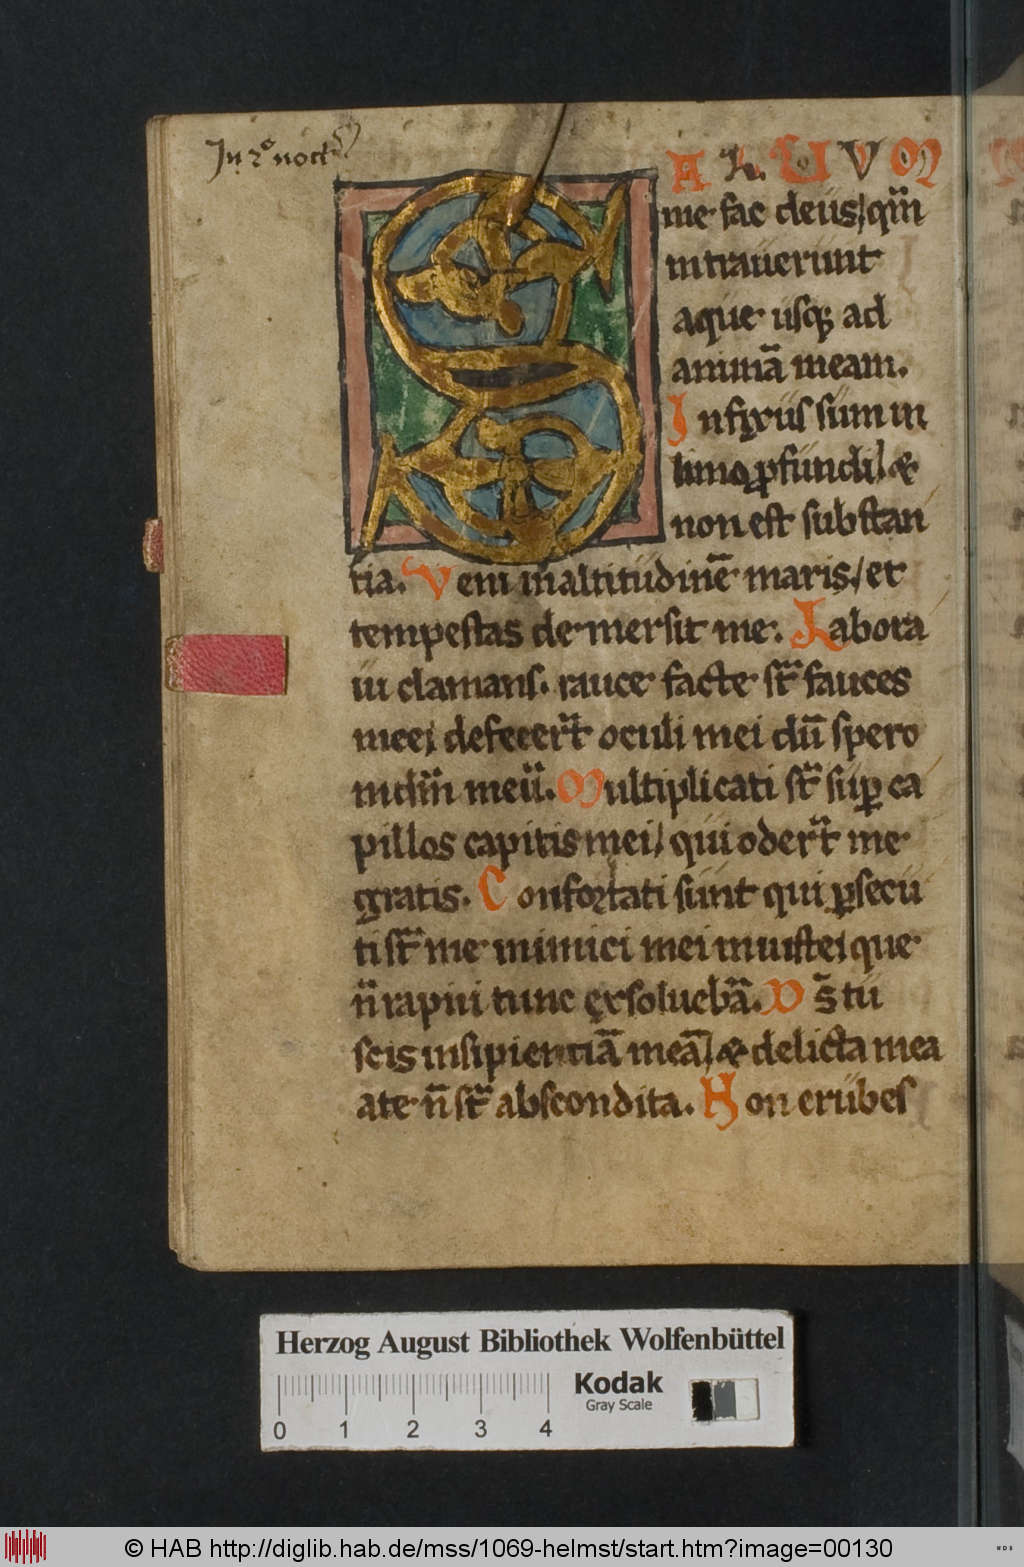 In 2º noct
SALVVM
me fac deus, qm̄
intrauerunt
aque usq; ad
animā meam.
Infixus sum in
limo ꝓfundi, &
non est substan
tia. Veni in altitudinē maris, et
tempestas demersit me. Labora
ui clamans. rauce facte st̄ fauces
mee, defecer̄t oculi mei dū spero
in dm̄ meū. Multiplicati st̄ sup ca
pillos capitis mei, qui oder̄t me
gratis. Confortati sunt qui ꝑsecu
ti st̄ me inimici mei iniuste, que
n̄ rapui tunc exsoluebā. Ds̄ tu
scis insipientiā meā, & delicta mea
a te n̄ st̄ abscondita. Non erubes
Herzog August Bibliothek Wolfenbüttel
Kodak
Gray Scale
0 1 2 3 4
© HAB http://diglib.hab.de/mss/1069-helmst/start.htm?image=00130